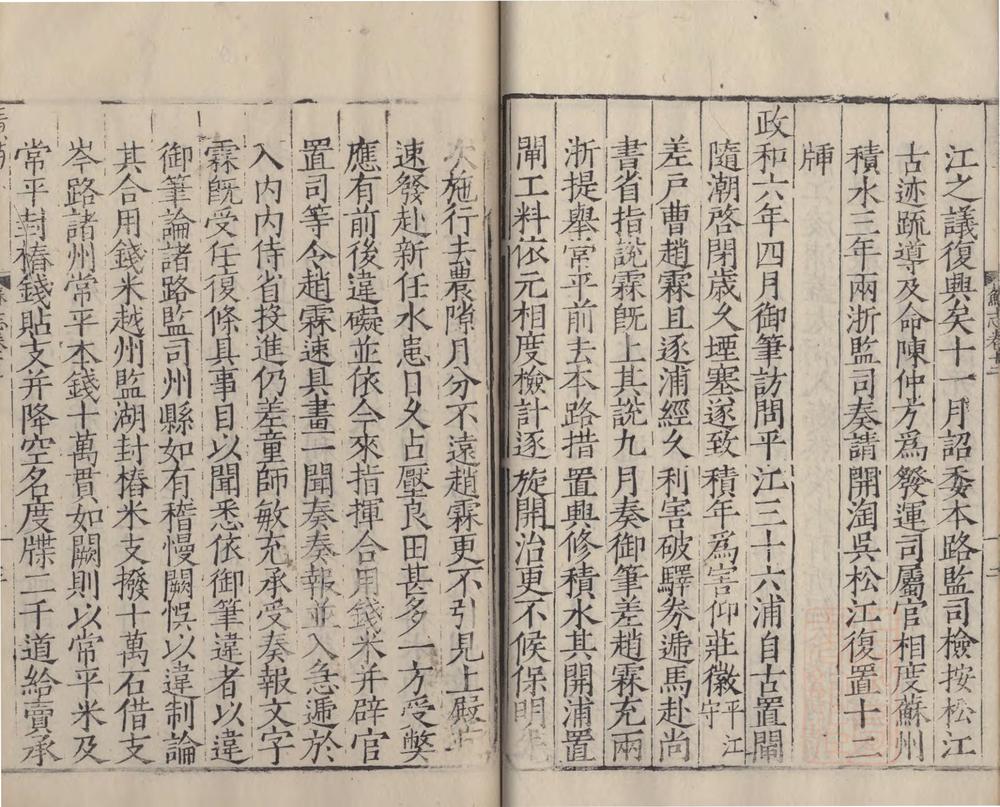 江之議復興矣十一月詔委本路監司檢按松江
古迹䟽導及命陳仲方爲發運司屬官相度蘇州
積水三年兩浙監司奏請開淘吳松江復置十二
牐
政和六年四月御筆訪問平江三十六浦自古置閘
隨潮啓閉歲久堙塞遂致積年爲害仰莊徽平江守
差戶曹趙霖且逐浦經久利害破驛券遞馬赴尚
書省指說霖旣上其說九月奏御筆差趙霖充兩
浙提舉常平前去本路措置興修積水其開浦置
閘工料依元相度檢計逐旋開治更不候保明
次施行去農隙月分不遠趙霖更不引見上殿
速發赴新任水患日久占壓良田甚多一方受弊
應有前後違礙並依今來指揮合用錢米并辟官
置司等令趙霖速具畫一聞奏奏報並入急遞於
入內內侍省投進仍差童師敏充承受奏報文字
霖旣受任復條具事目以聞悉依御筆違者以違
御筆論諸路監司州縣如有稽慢闕悮以違制論
其合用錢米越州監湖封樁米支撥十萬石借支
岑路諸州常平本錢十萬貫如闕則以常平米及
常平封樁錢貼支并降空名度牒二千道給賣承